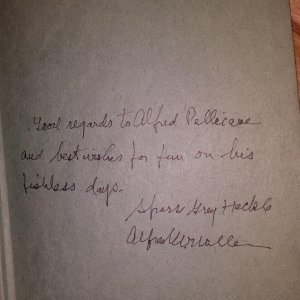 Good regards to Alfred Pellicane
and best wishes for fun on his
fishless days.
Sparse Grey Hackle
Alfred W Miller